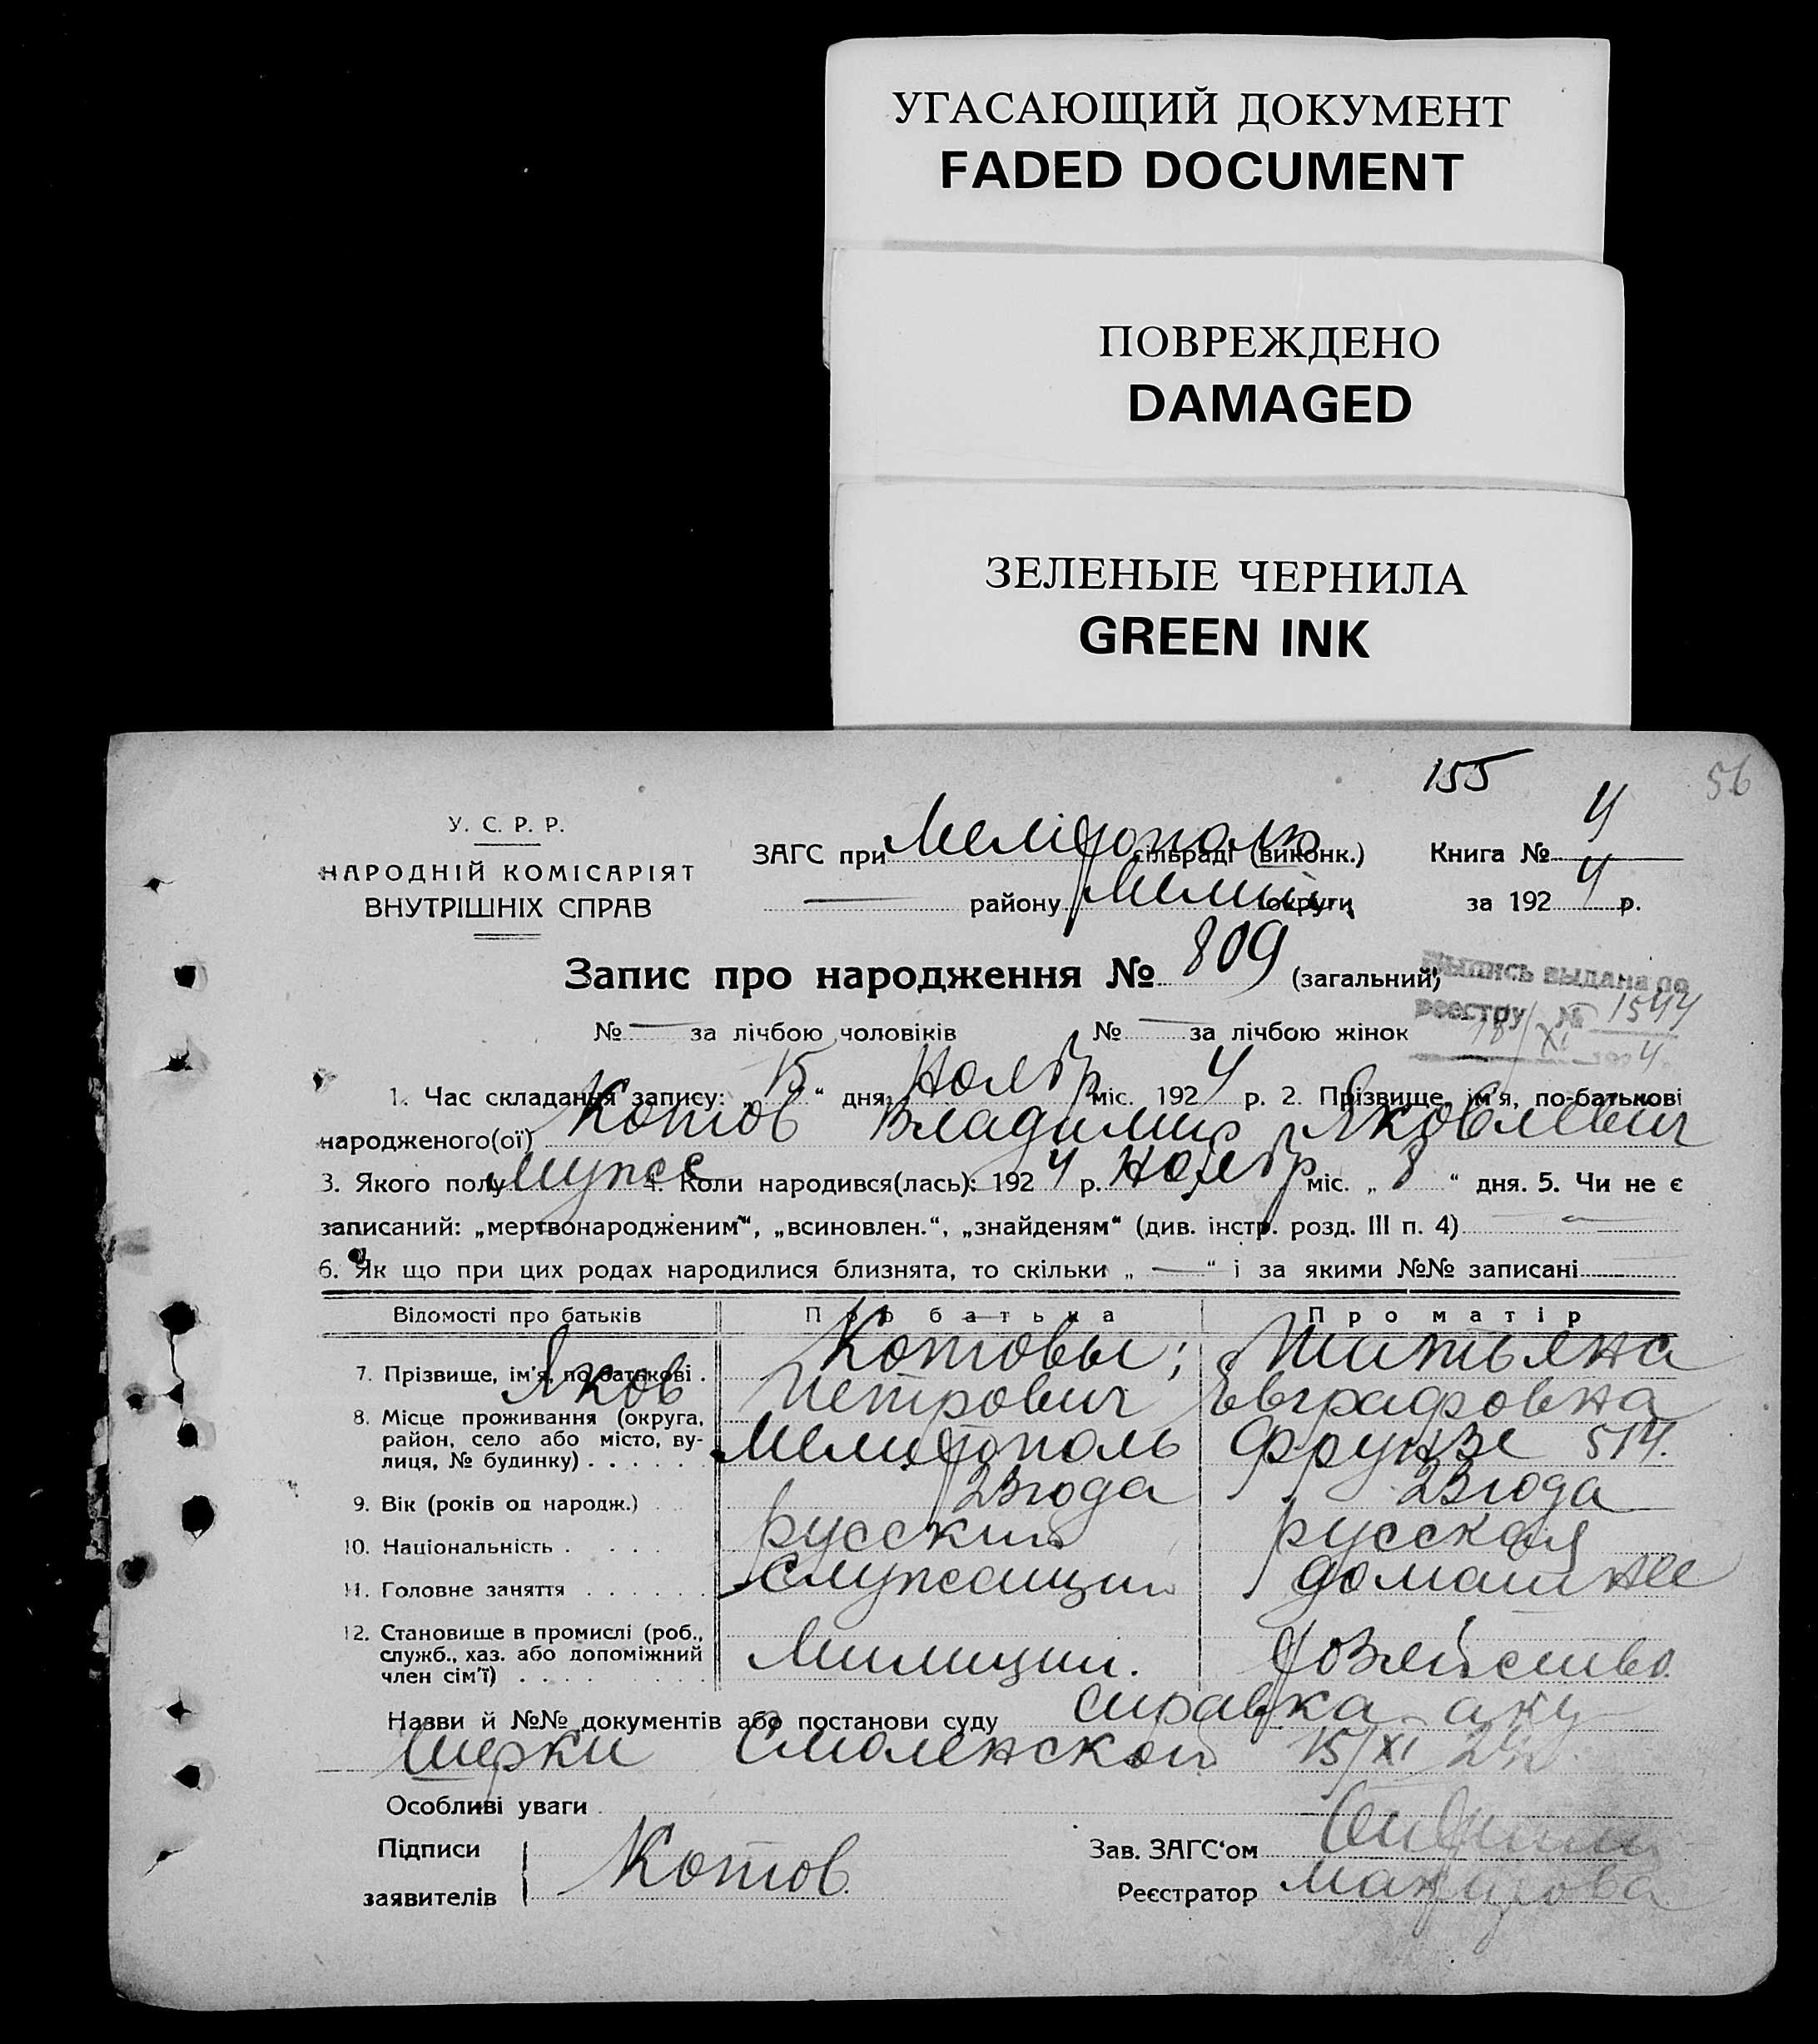 УГАСАЮЩИЙ ДОКУМЕНТ
FADED DOCUMENT
ПОВРЕЖДЕНО
DAMAGED
ЗЕЛЕНЫЕ ЧЕРНИЛА
GREEN INK
155
56
У. С. Р. Р.
НАРОДНІЙ КОМІСАРІЯТ
ВНУТРІШНІХ СПРАВ
ЗАГС при Мелітополь сільраді (виконк.) Книга № 4
— району Мелит. округи за 1924 р.
Запис про народження № 809 (загальний)
Выпись выдана по
реестру № 1544
18/XI 1924.
№ — за лічбою чоловіків № — за лічбою жінок
1. Час складання запису: „15“ дня Ноябр міс. 1924 р. 2. Прізвище, ім'я, по-батькові
народженого(ої) Котов Владимир Яковлевич
3. Якого полу Мужс 4. Коли народився(лась): 1924 р. Ноябр міс. „8“ дня. 5. Чи не є
записаний: „мертвонародженим“, „всиновлен.“, „знайденям“ (див. інстр. розд. III п. 4) —
6. Як що при цих родах народилися близнята, то скільки „—“ і за якими №№ записані
Відомості про батьків Про батька Про матір
7. Прізвище, ім'я, по-батькові . Котовы; Татьяна
Яков Петрович Евграфовна
8. Місце проживання (округа,
район, село або місто, ву-
лиця, № будинку) . . . . . Мелитополь Фрунзе 514.
9. Вік (років од народж.) . . 23 года 23 года
10. Національність . . . . русский русская
11. Головне заняття . . . . . . служащий домашнее
12. Становище в промислі (роб.,
служб., хаз. або допоміжний
член сім'ї) . . . . Милиции. хозяйство.
Назви й №№ документів або постанови суду справка аку
шерки Смоленской 15/XI 24
Особливі уваги
Підписи
заявителів Котов.
Зав. ЗАГС'ом
Реєстратор